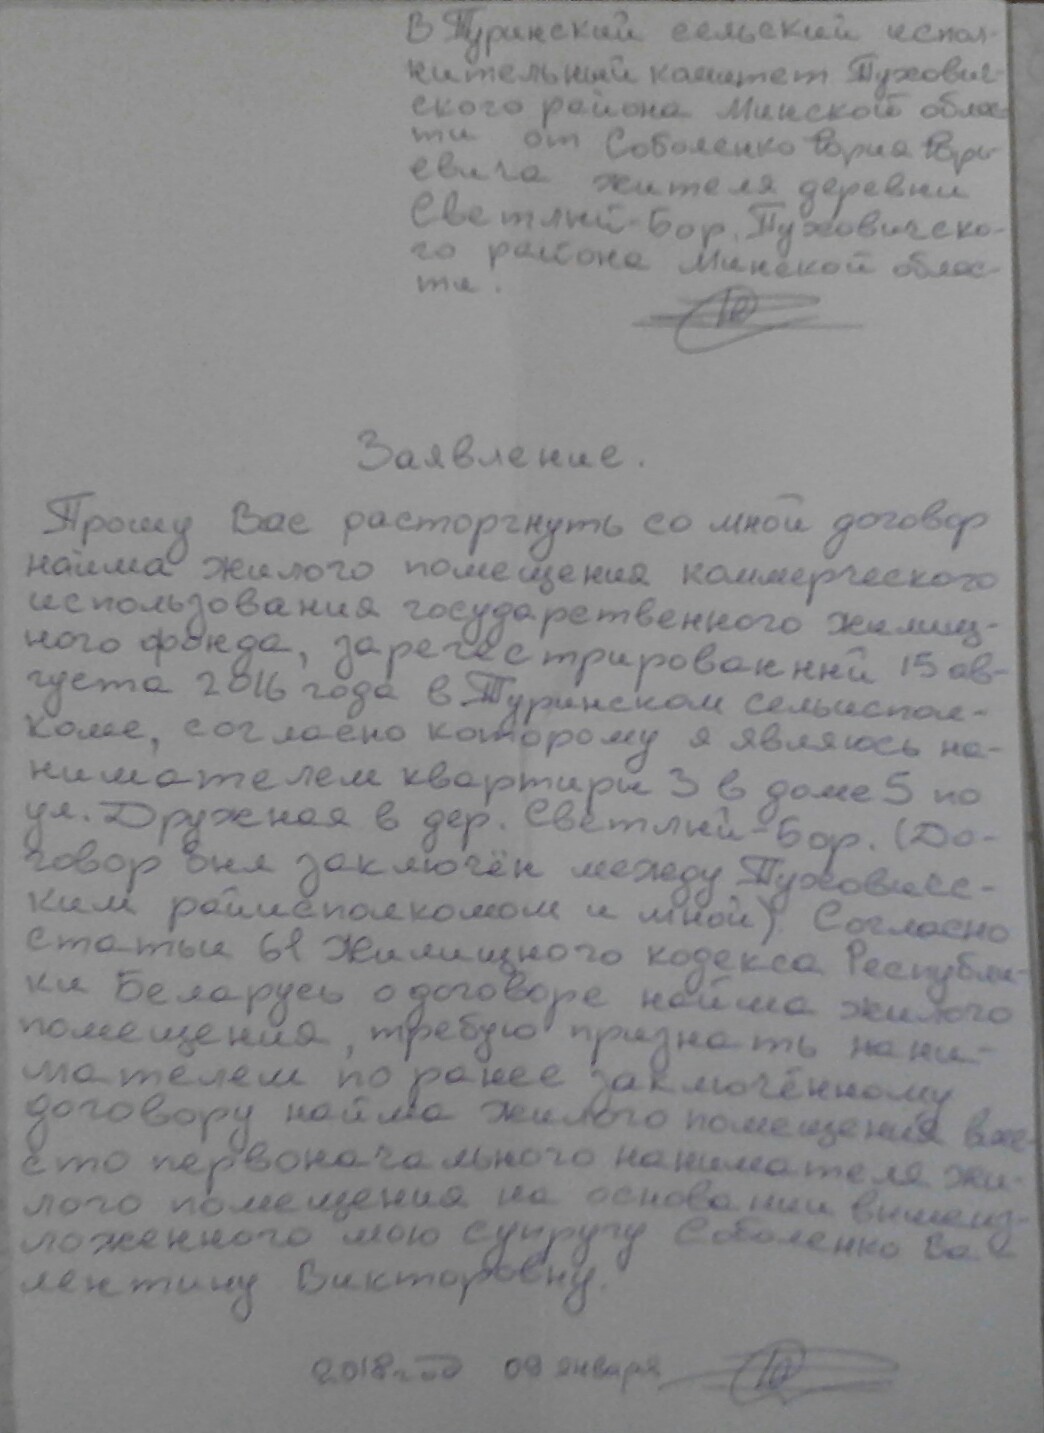 В Туринский сельский испол-
нительный комитет Пухович-
ского района Минской облас-
ти от Соболенко Юрия Юрь-
евича жителя деревни
Светлый-Бор, Пуховичско-
го района Минской облас-
ти.
Заявление.
Прошу Вас расторгнуть со мной договор
найма жилого помещения коммерческого
использования государственного жилищ-
ного фонда, зарегестрированный 15 ав-
густа 2016 года в Туринском сельиспол-
коме, согласно которому я являюсь на-
нимателем квартиры 3 в доме 5 по
ул. Дружная в дер. Светлый-Бор. (До-
говор был заключён между Пуховичс-
ким райисполкомом и мной). Согласно
статьи 61 Жилищного кодекса Республи-
ки Беларусь о договоре найма жилого
помещения, требую признать нани-
мателем по ранее заключённому
договору найма жилого помещения вме-
сто первоначального нанимателя жи-
лого помещения на основании вышеиз-
ложенного мою супругу Соболенко Ва-
лентину Викторовну.
2018 год 09 января